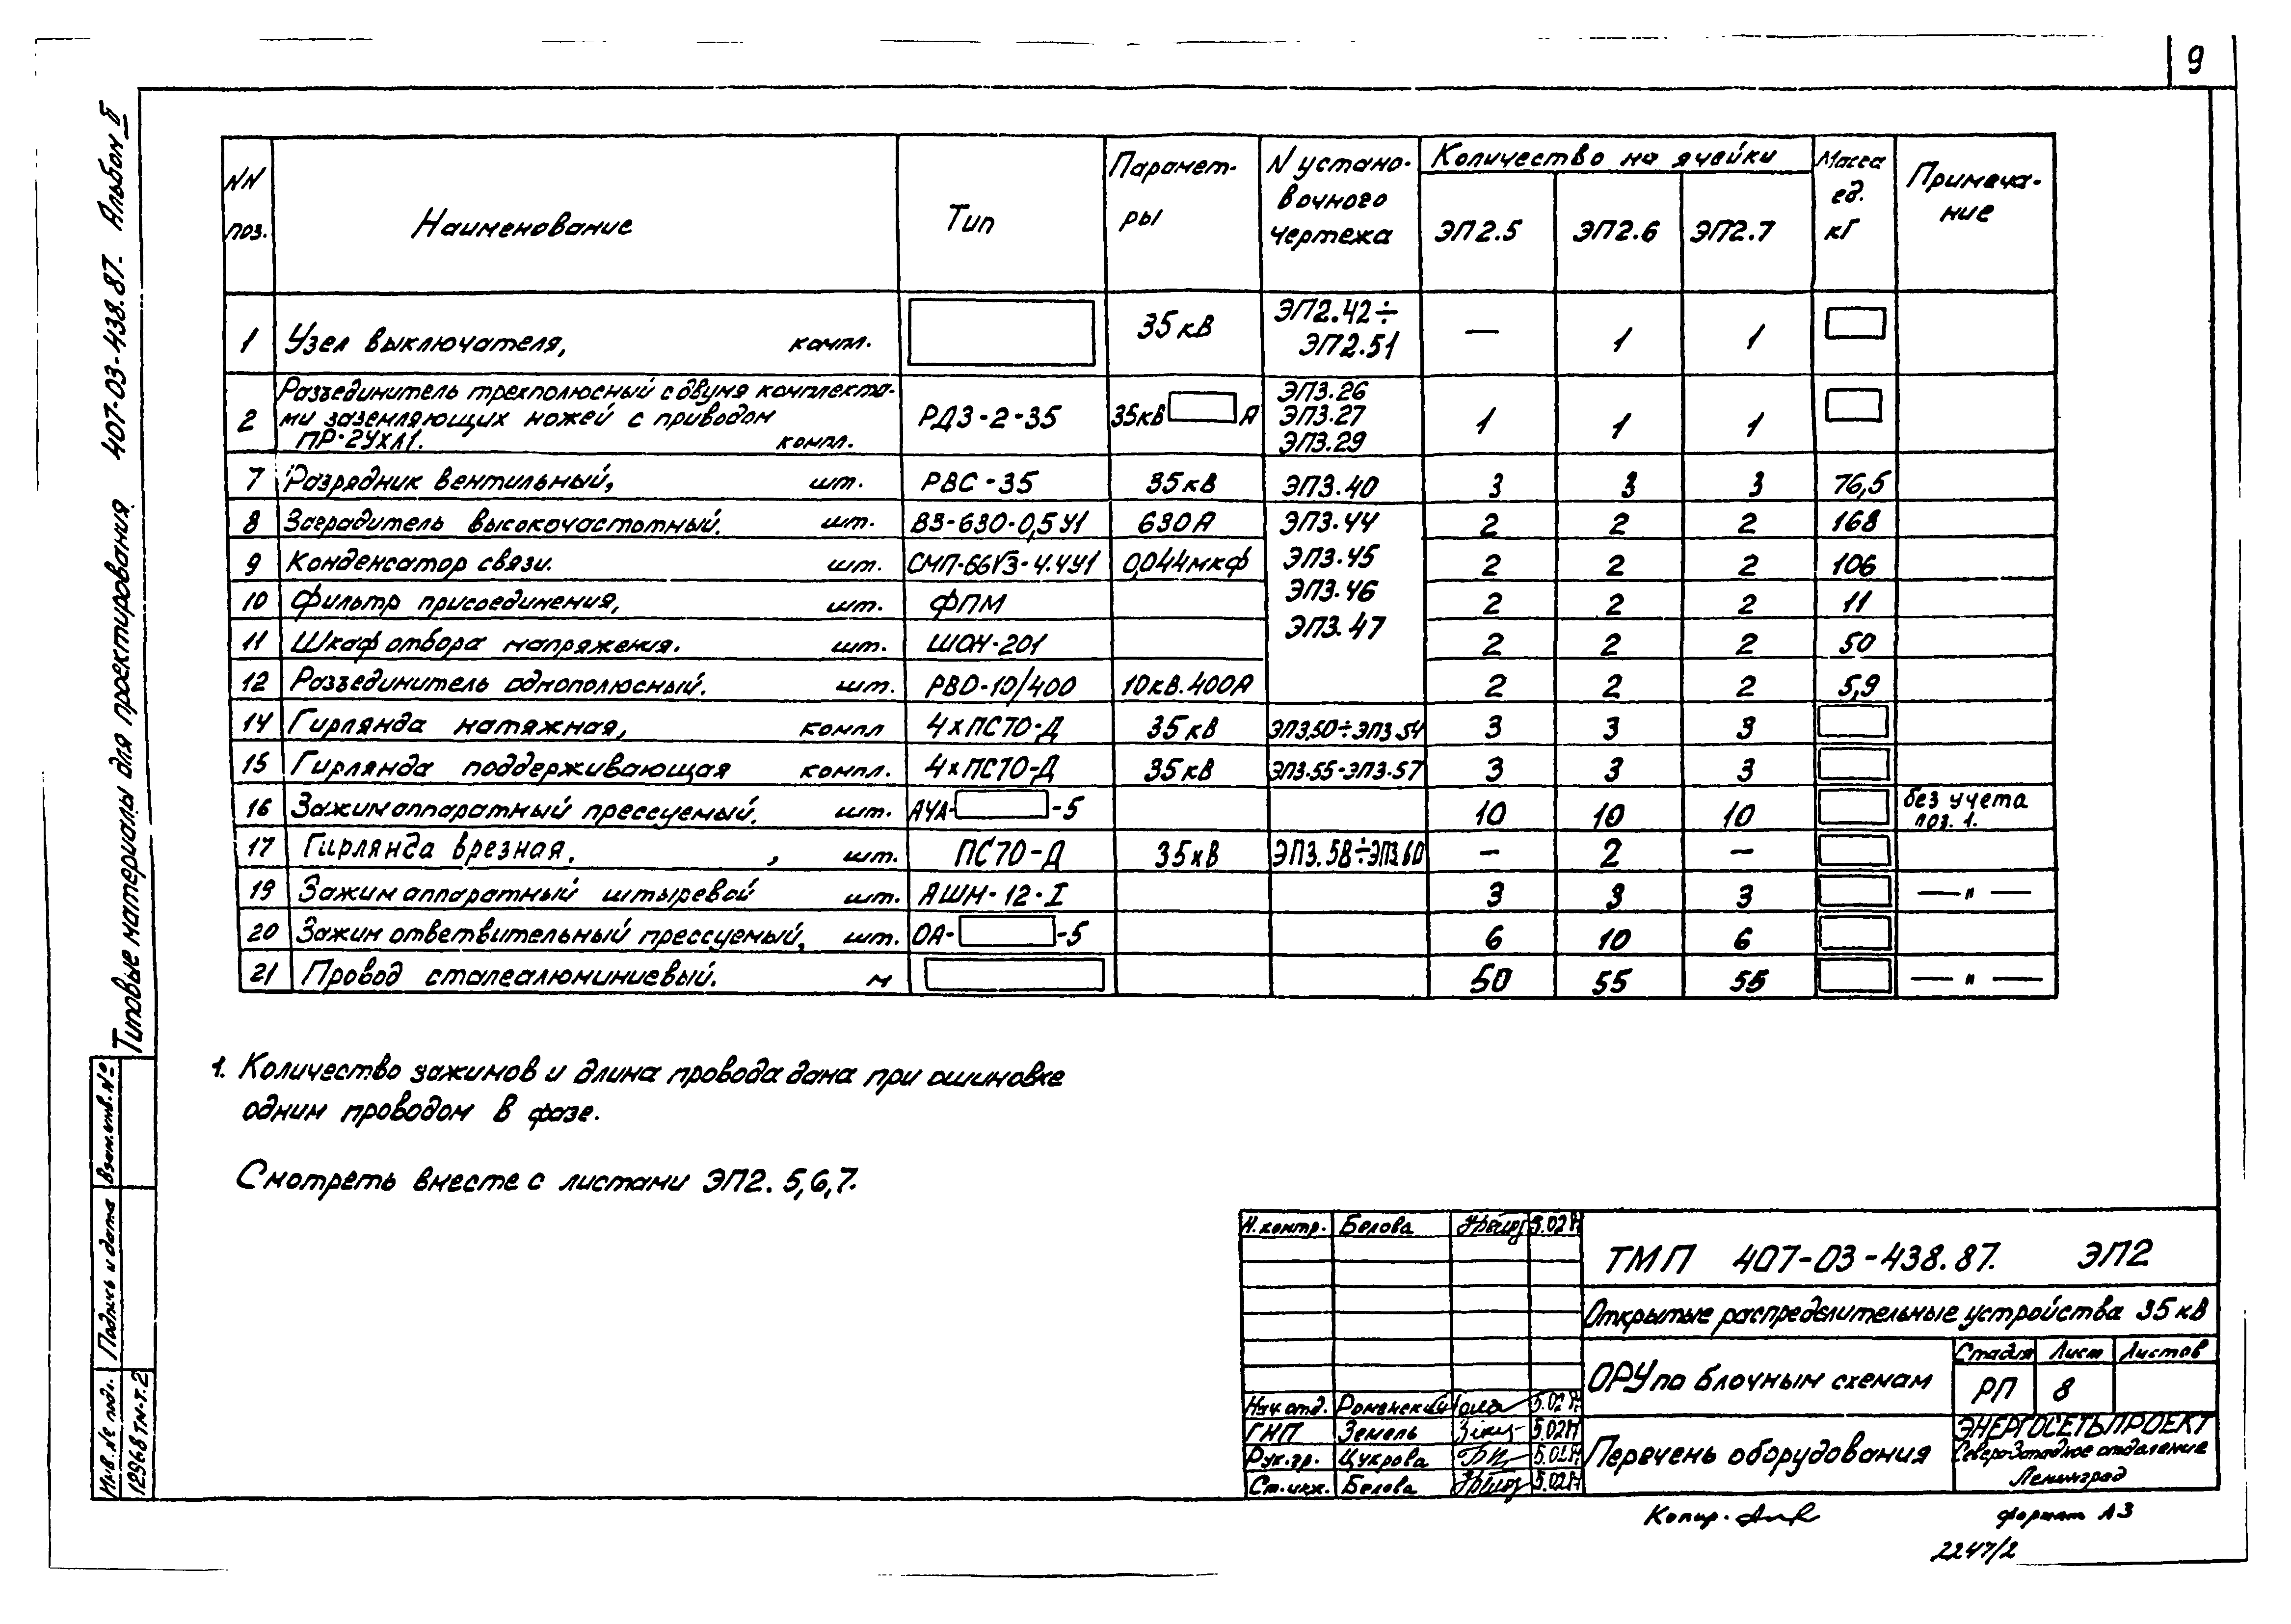 9
Типовые материалы для проектирования 407-03-438.87. Альбом II
NN поз. Наименование Тип Параметры N установочного чертежа Количество на ячейки Масса ед. кг Примечание
ЭП2.5 ЭП2.6 ЭП2.7
1 Узел выключателя, компл. 35кВ ЭП2.42÷ЭП2.51 — 1 1
2 Разъединитель трехполюсный с двумя комплекта-
ми заземляющих ножей с приводом
ПР-2УХЛ1. компл. РДЗ-2-35 35кВ А ЭП3.26 ЭП3.27 ЭП3.29 1 1 1
7 Разрядник вентильный, шт. РВС-35 35кВ ЭП3.40 3 3 3 76,5
8 Заградитель высокочастотный. шт. ВЗ-630-0,5У1 630А ЭП3.44 2 2 2 168
9 Конденсатор связи. шт. СМП-66/√3-4.4У1 0,044мкФ ЭП3.45 2 2 2 106
10 Фильтр присоединения, шт. ФПМ ЭП3.46 2 2 2 11
11 Шкаф отбора напряжения. шт. ШОН-201 ЭП3.47 2 2 2 50
12 Разъединитель однополюсный. шт. РВО-10/400 10кВ.400А 2 2 2 5,9
14 Гирлянда натяжная, компл 4хПС70-Д 35кВ ЭП3.50÷ЭП3.54 3 3 3
15 Гирлянда поддерживающая компл. 4хПС70-Д 35кВ ЭП3.55-ЭП3.57 3 3 3
16 Зажим аппаратный прессуемый, шт. А4А- -5 10 10 10 без учета поз. 1.
17 Гирлянда врезная, , шт. ПС70-Д 35кВ ЭП3.58÷ЭП3.60 — 2 —
19 Зажим аппаратный штыревой шт. АШМ-12-I 3 3 3 — " —
20 Зажим ответвительный прессуемый, шт. ОА- -5 6 10 6
21 Провод сталеалюминиевый. м 50 55 55 — " —
1. Количество зажимов и длина провода дана при ошиновке
одним проводом в фазе.
Смотреть вместе с листами ЭП2. 5,6,7.
Взам.инв.№
Подпись и дата
Инв.№ подл. 12968тм-т.2
Н.контр. Белова
Нач.отд. Роменский
ГИП Земель
Рук.гр. Цукрова
Ст.инж. Белова
ТМП 407-03-438.87. ЭП2
Открытые распределительные устройства 35кВ
ОРУ по блочным схемам
Стадия Лист Листов
РП 8
Перечень оборудования
ЭНЕРГОСЕТЬПРОЕКТ
Северо-Западное отделение
Ленинград
Копир. Формат А3
2247/2